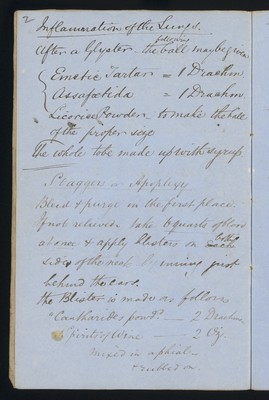 2
Inflammation of the Lungs.
following
After a Glyster. the ball may be given
Emetic Tartar = 1 Drachm.
Assafoetida = 1 Drachm.
Licorice Powder to make the ball
of the proper size
The whole to be made up with syrup.
Staggers or Apoplexy
Bleed & purge in the first place.
If not relieved take quarts of blood
at once & apply blisters on
side of the neck running just
behind the ears.
The Blister is made as follows
Cantharides powd. — 2 Drachms
Spirits of Wine — 2 Oz.
mixed in a phial —
& rubbed on.